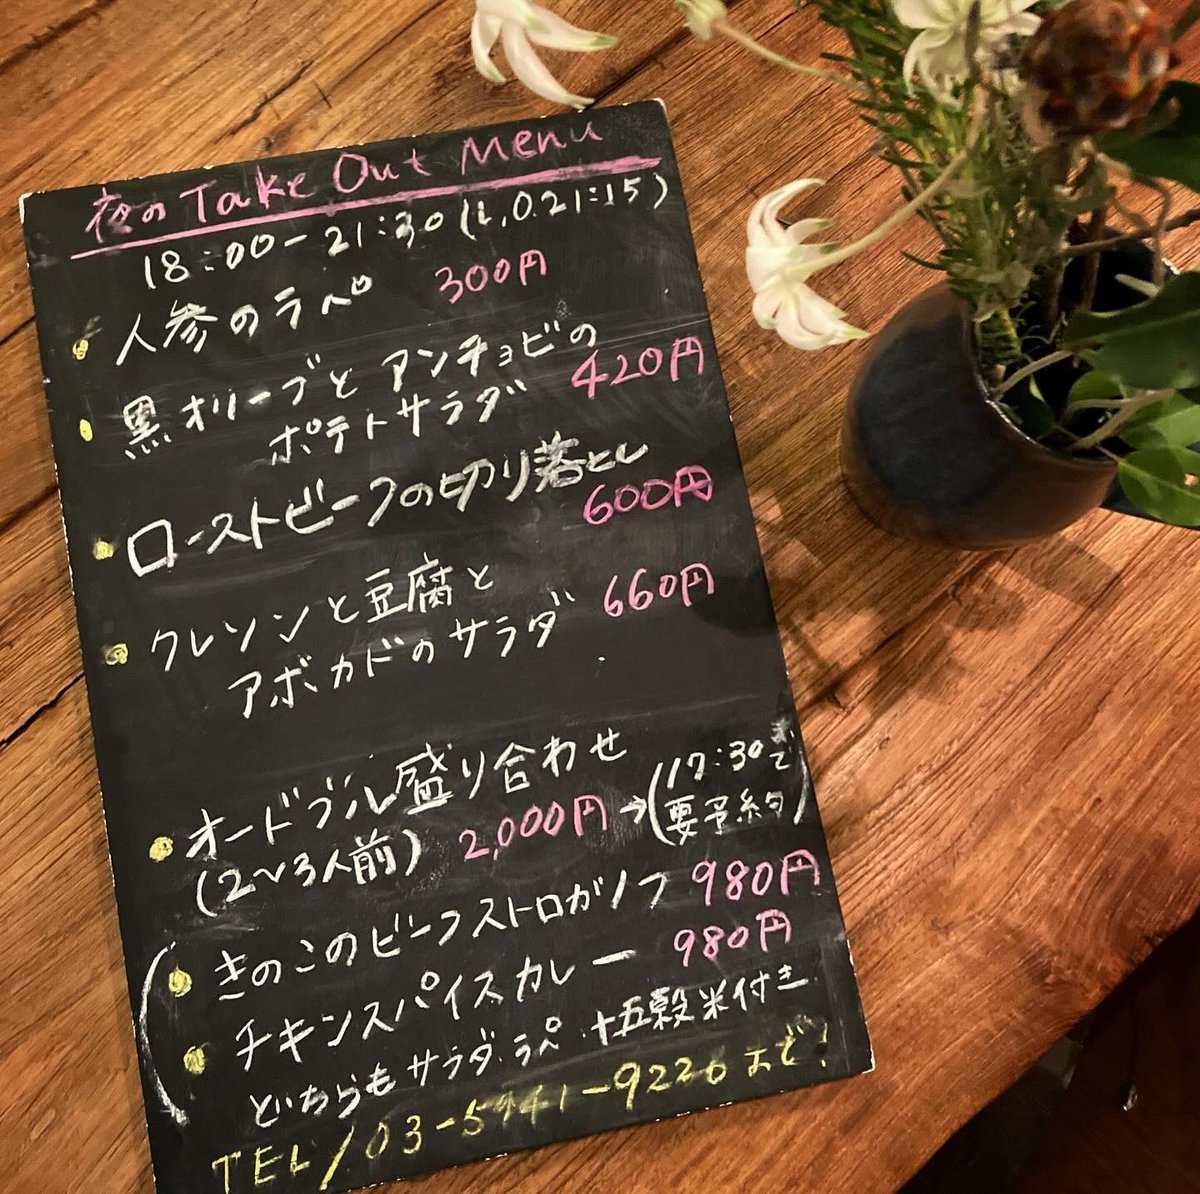 夜のTake Out Menu
18:00-21:30(L,O.21:15)
・人参のラペ 300円
・黒オリーブとアンチョビの
ポテトサラダ 420円
・ローストビーフの切り落とし
600円
・クレソンと豆腐と
アボカドのサラダ 660円
・オードブル盛り合わせ
(2〜3人前) 2,000円→(17:30まで
要予約)
・きのこのビーフストロガノフ 980円
・チキンスパイスカレー 980円
どちらもサラダ・ラペ・十五穀米付き
TEL/03-5941-9226まで!